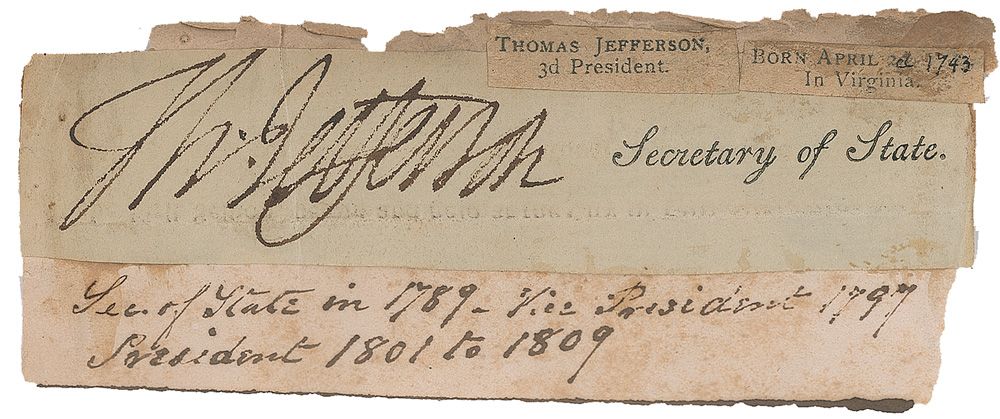 THOMAS JEFFERSON,
3d President.
BORN APRIL 2d, 1743
In Virginia.
Th: Jefferson
Secretary of State.
Sec. of State in 1789 - Vice President 1797
President 1801 to 1809